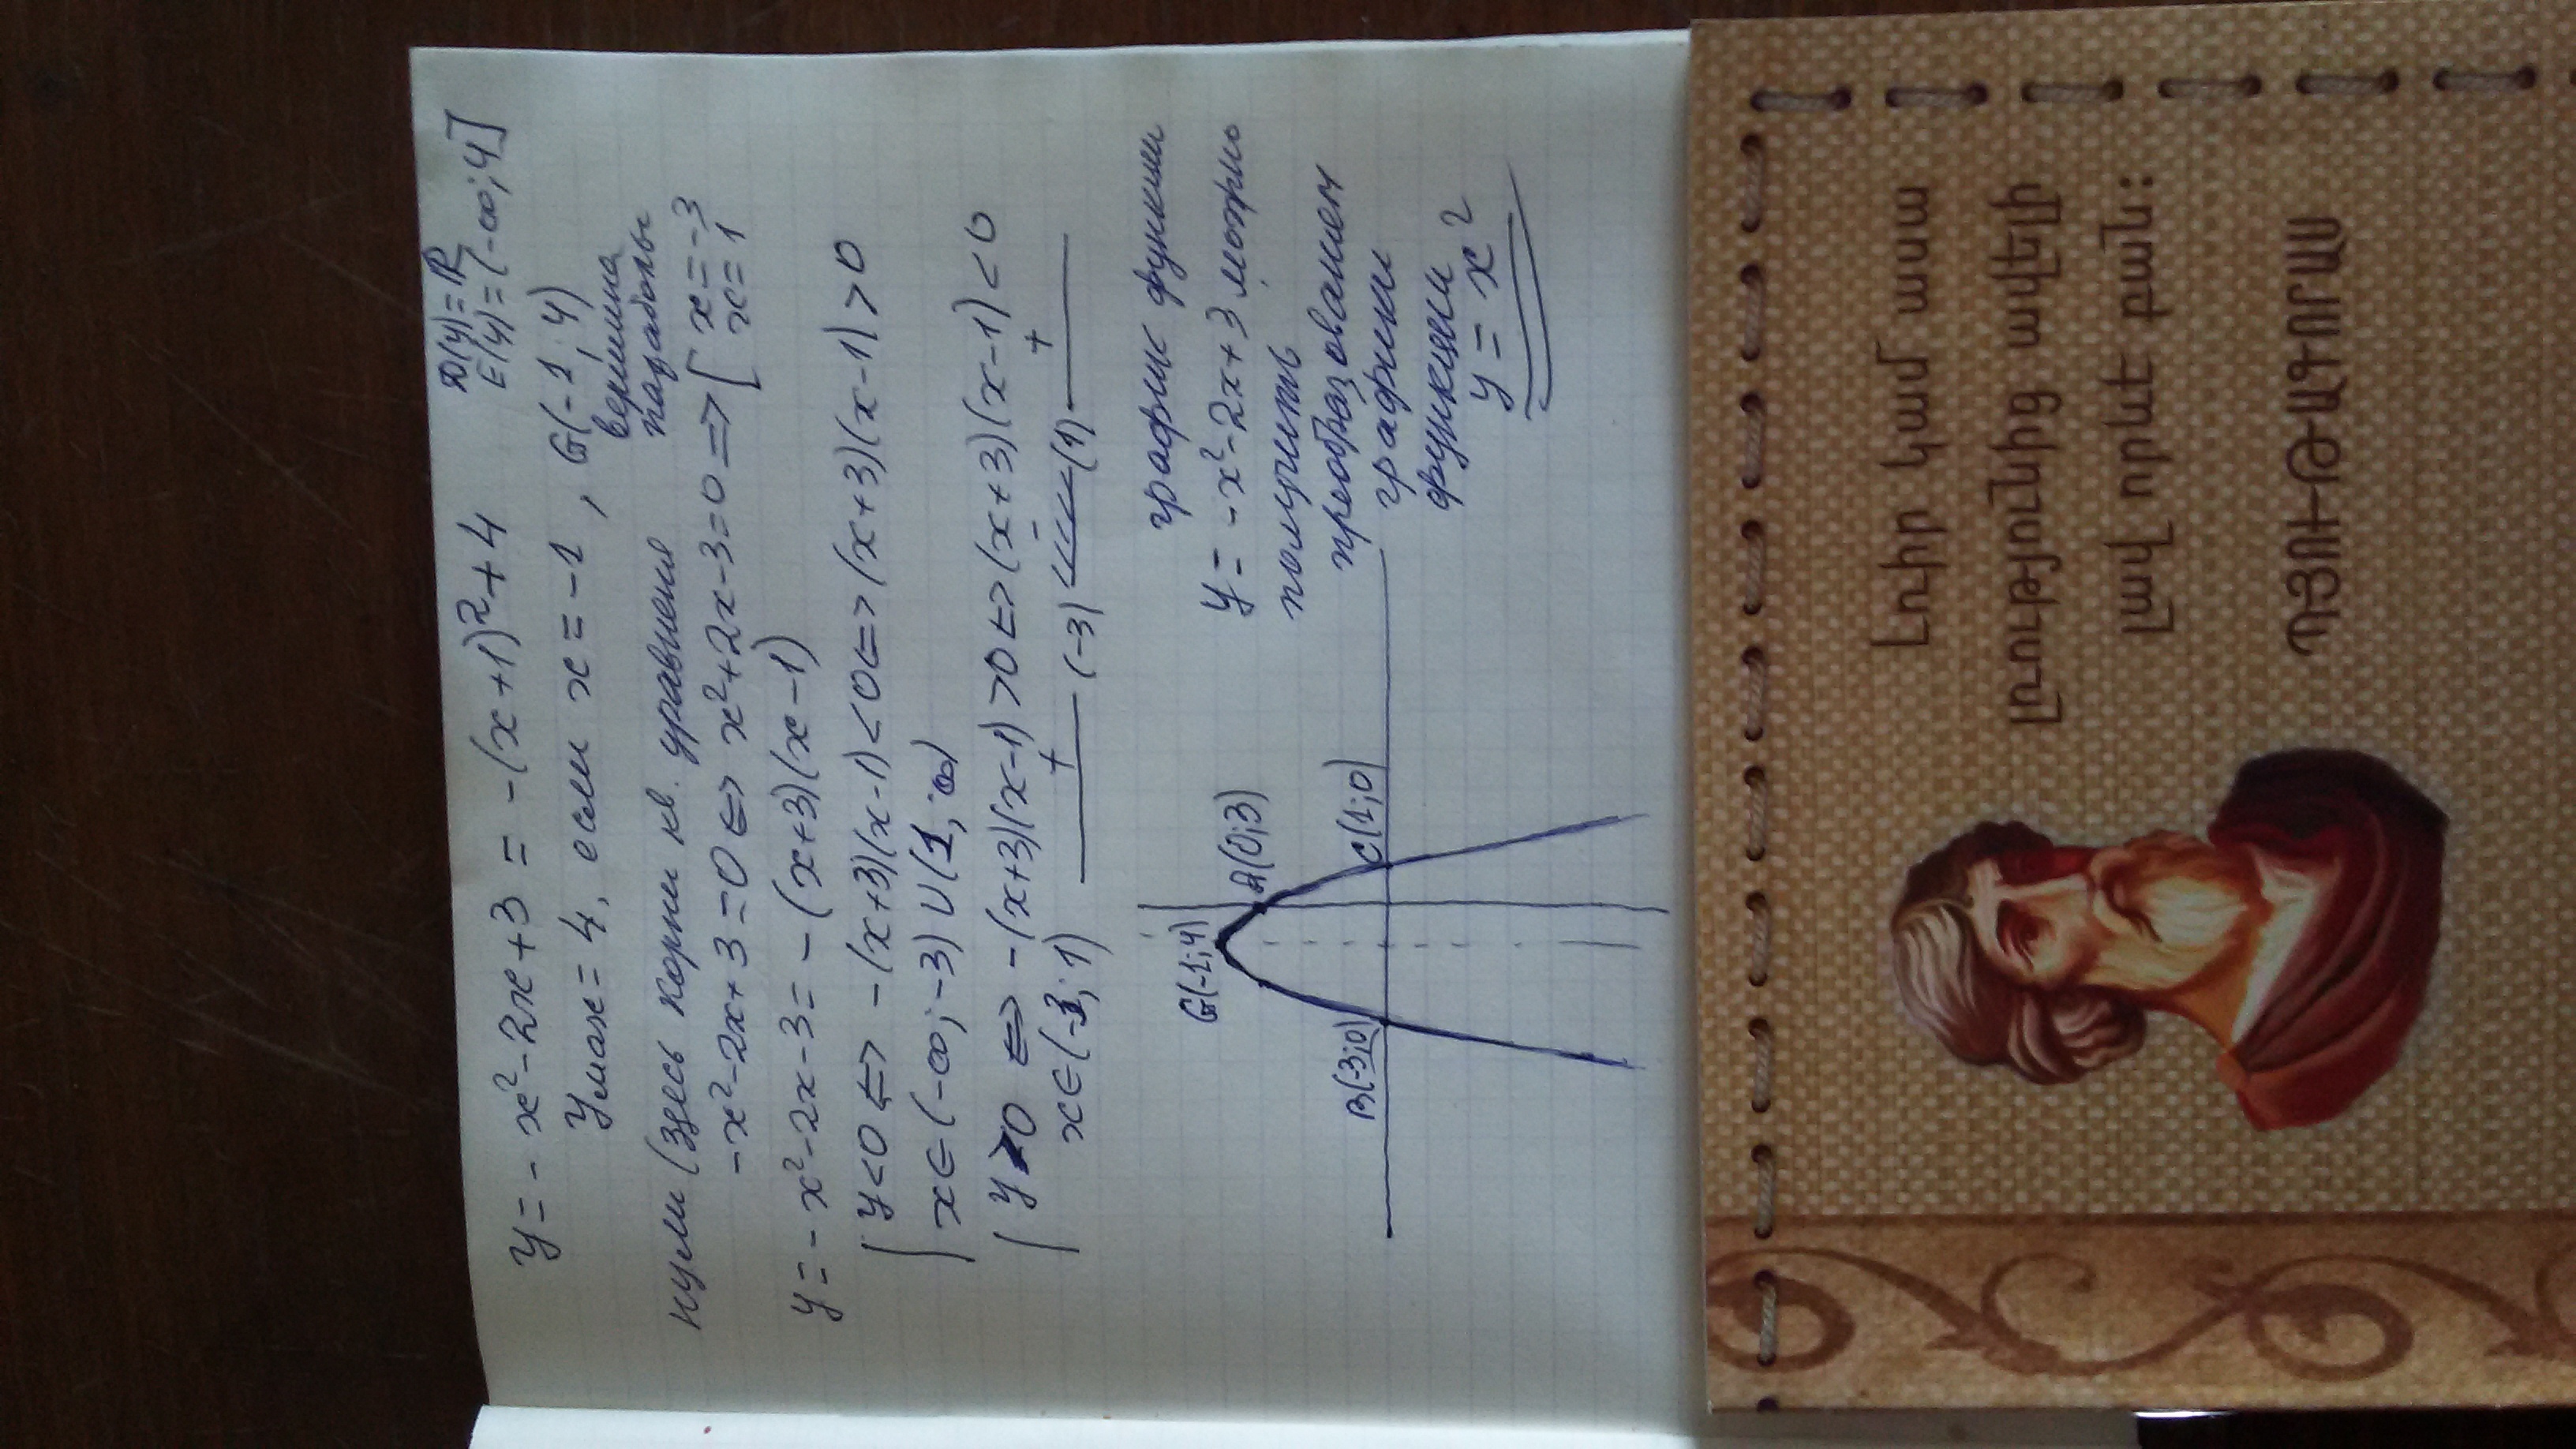 y = - x² - 2x + 3 = - (x+1)² + 4
D(y) = R
E(y) = (-∞; 4]
yмах = 4, если x = -1, G(-1; 4)
вершина
параболы
нули (здесь корни кв. уравнения
-x² - 2x + 3 = 0 <=> x² + 2x - 3 = 0 => [ x = -3
x = 1
y = - x² - 2x - 3 = - (x+3)(x-1)
y < 0 <=> -(x+3)(x-1) < 0 <=> (x+3)(x-1) > 0
x ∈ (-∞; -3) ∪ (1; ∞)
y > 0 <=> -(x+3)(x-1) > 0 <=> (x+3)(x-1) < 0
x ∈ (-3; 1)
+ (-3) - (1) +
G(-1; 4)
A(0; 3)
B(-3; 0)
C(1; 0)
график функции
y = - x² - 2x + 3 можно
получить
преобразованием
графики
функции
y = x²
Լուիր կամ ասա
լռությունից ավելի
լավ որևէ բան:
ՊՅՈՒԹԱԳՈՐԱՍ